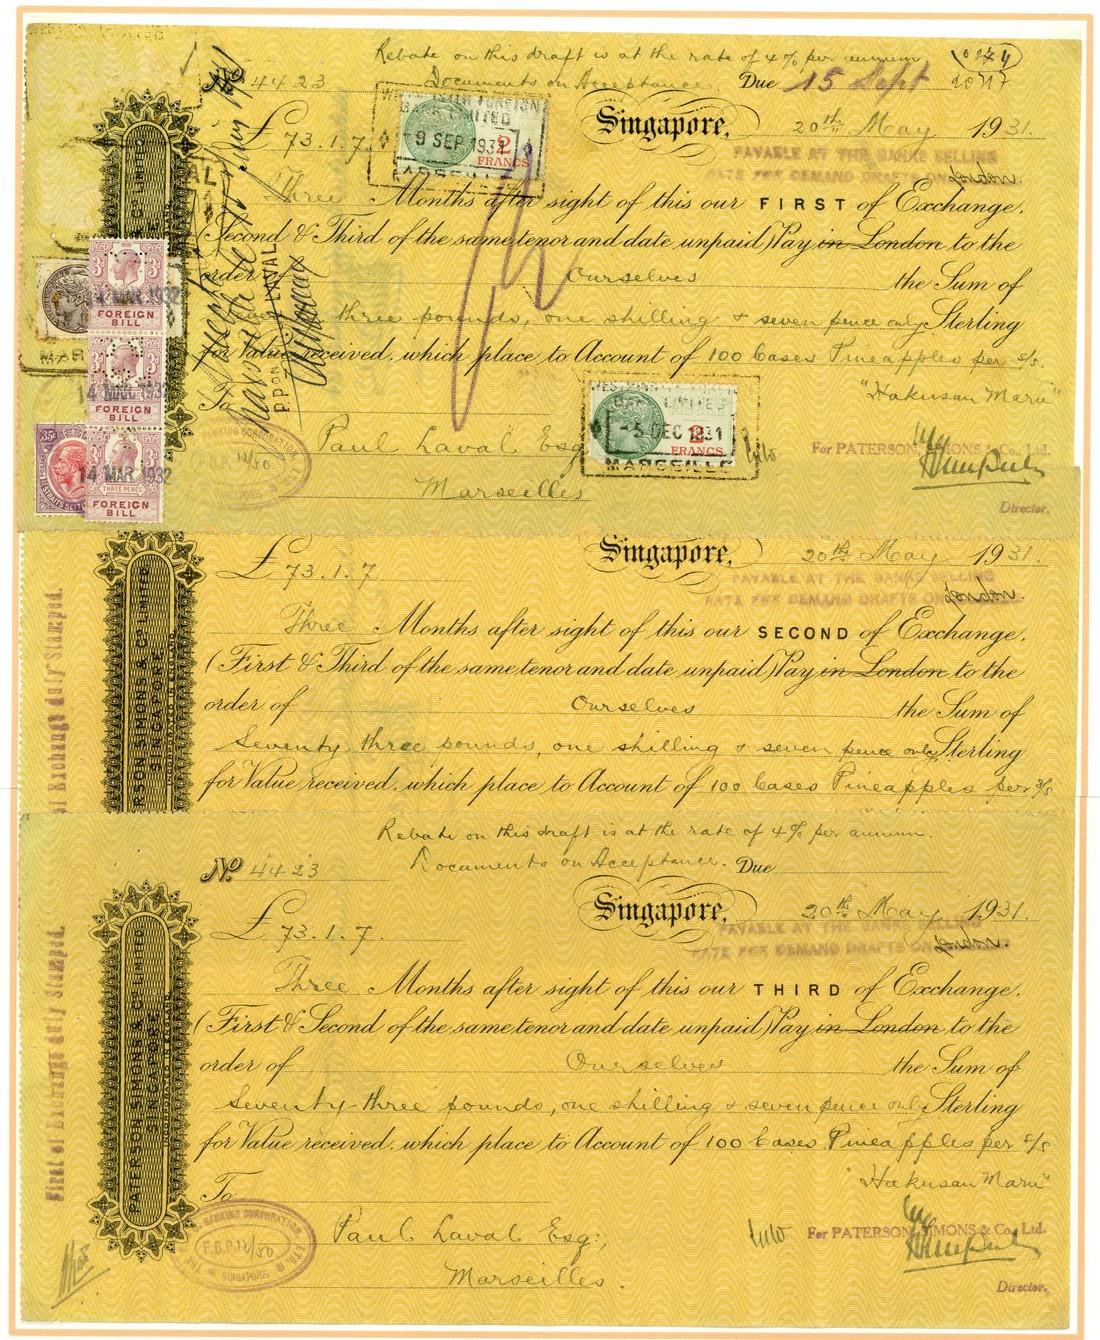 Rebate on this draft is at the rate of 4% per annum
No 4423 Documents on Acceptance. Due 15 Sept
WESTMINSTER FOREIGN
BANK LIMITED
-9 SEP. 1931
2
FRANCS
MARSEILLE
£ 73.1.7 Singapore, 20th May 1931.
PAYABLE AT THE BANKS SELLING
RATE FOR DEMAND DRAFTS ON London.
Three Months after sight of this our FIRST of Exchange,
(Second & Third of the same tenor and date unpaid) Pay in London to the
order of Ourselves the Sum of
three pounds, one shilling & seven pence only Sterling
for Value received, which place to Account of 100 Cases Pineapples per s/s
"Hakusan Maru"
To
Paul Laval Esq
Marseilles
WESTMINSTER FOREIGN
BANK LIMITED
-5 DEC 1931
2
FRANCS
MARSEILLE
For PATERSON, SIMONS & Co., Ltd.
Director.
P.PON LAVAL
3d
14 MAR 1932
FOREIGN
BILL
3d
14 MAR 1932
FOREIGN
BILL
35c
14 MAR 1932
THREE PENCE
FOREIGN
BILL
£ 73.1.7 Singapore, 20th May 1931.
PAYABLE AT THE BANKS SELLING
RATE FOR DEMAND DRAFTS ON London.
Three Months after sight of this our SECOND of Exchange,
(First & Third of the same tenor and date unpaid) Pay in London to the
order of Ourselves the Sum of
Seventy three pounds, one shilling & seven pence only Sterling
for Value received, which place to Account of 100 Cases Pineapples per s/s
of Exchange duly Stamped.
PATERSON, SIMONS & Co LIMITED
SINGAPORE
INCORPORATED IN ENGLAND
Rebate on this draft is at the rate of 4% per annum.
No 4423 Documents on Acceptance. Due
£ 73.1.7. Singapore, 20th May 1931.
PAYABLE AT THE BANKS SELLING
RATE FOR DEMAND DRAFTS ON London.
Three Months after sight of this our THIRD of Exchange,
(First & Second of the same tenor and date unpaid) Pay in London to the
order of Ourselves the Sum of
Seventy-three pounds, one shilling & seven pence only Sterling
for Value received, which place to Account of 100 Cases Pineapples per s/s
"Hakusan Maru"
To
Paul Laval Esq.,
Marseilles.
For PATERSON, SIMONS & Co., Ltd.
Director.
First of Exchange duly Stamped.
PATERSON, SIMONS & Co LIMITED
SINGAPORE
INCORPORATED IN ENGLAND
BANKING CORPORATION, LTD.
SINGAPORE